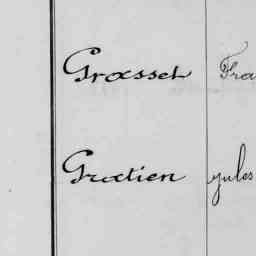 Grosset Fra
Gratien Jules